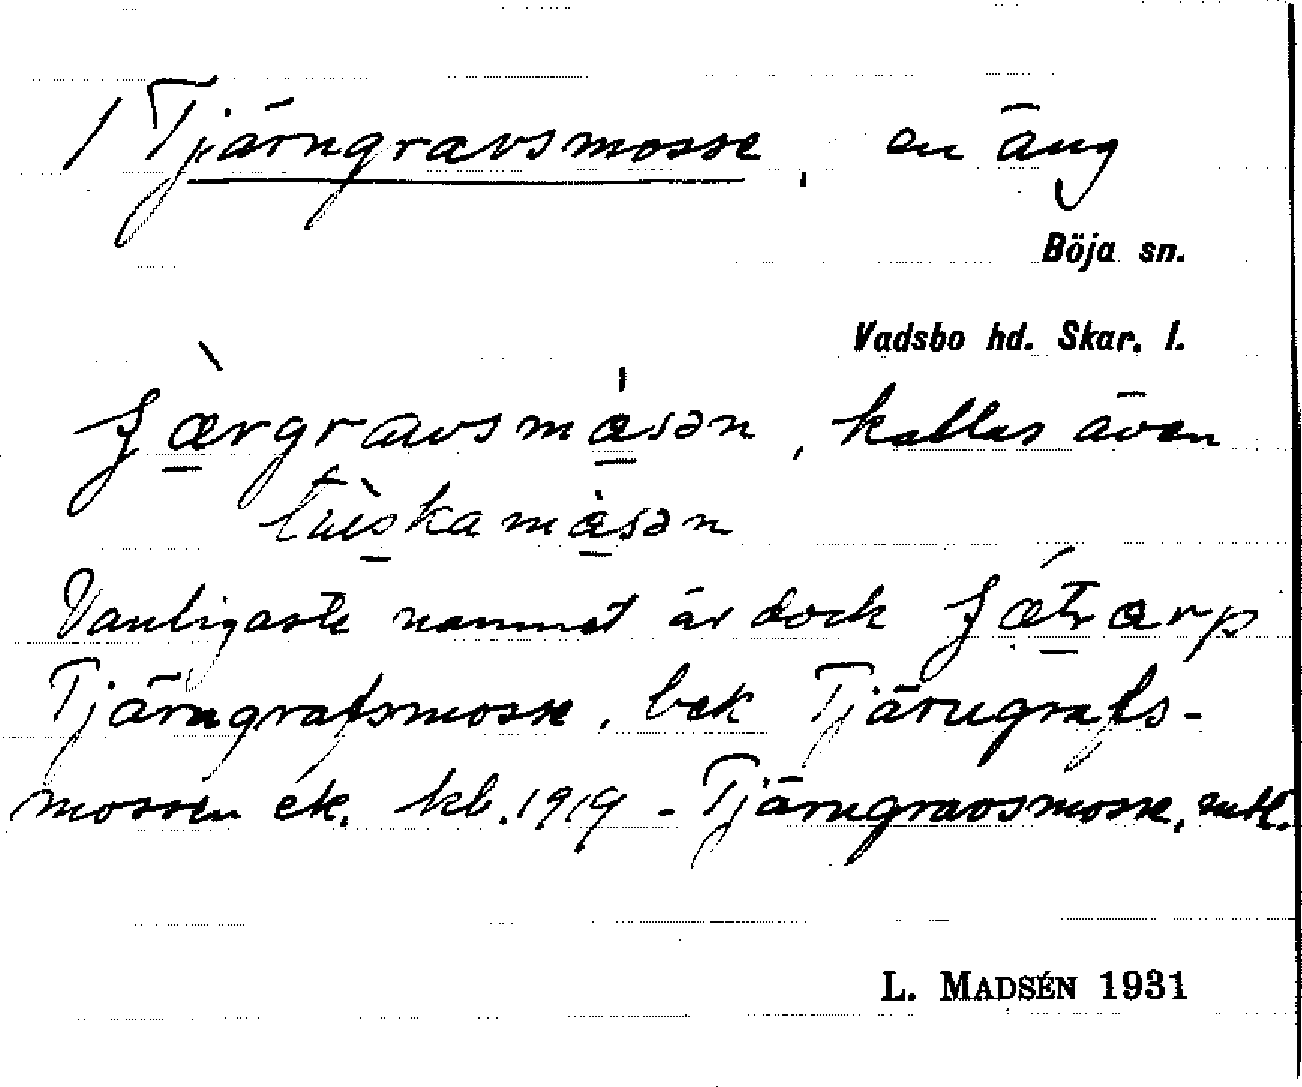 / Tjärngravsmosse, en äng
Böja sn.
Vadsbo hd. Skar. l.
ʃæ̀rgravsmåsən, kallas även
tùiskamåsən
Vanligaste namnet är dock ʃǽtrarp
Tjärngrafsmosse, bek Tjärngrafs-
mossen ek. kb. 1919 - Tjärngravsmosse,
L. MADSÉN 1931